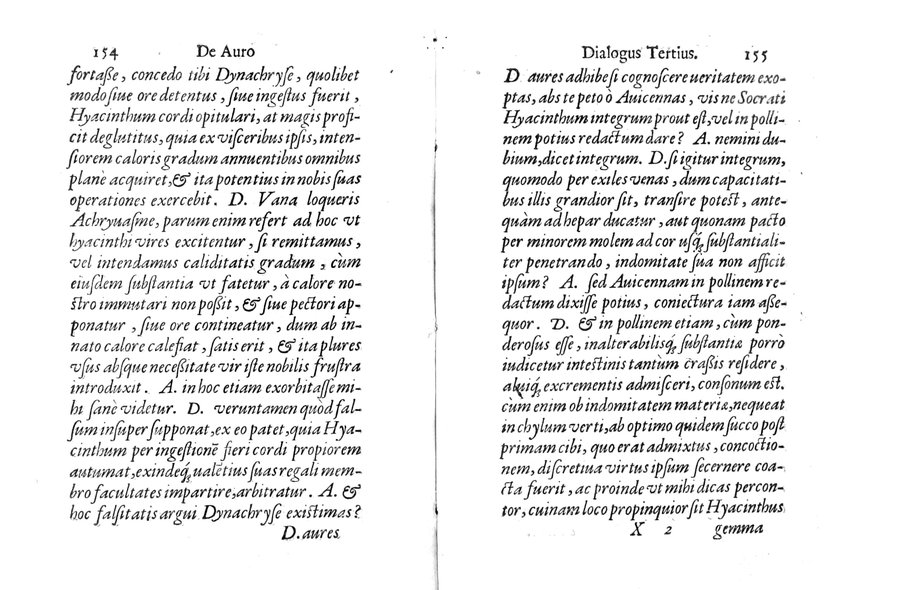 154 De Auro
fortaße, concedo tibi Dynachryſe, quolibet
modo ſiue ore detentus, ſiue ingeſtus fuerit,
Hyacinthum cordi opitulari, at magis profi-
cit deglutitus, quia ex viſceribus ipſis, inten-
ſiorem caloris gradum annuentibus omnibus
planè acquiret, & ita potentius in nobis ſuas
operationes exercebit. D. Vana loqueris
Achryuaſme, parum enim refert ad hoc vt
hyacinthi vires excitentur, ſi remittamus,
vel intendamus caliditatis gradum, cùm
eiuſdem ſubſtantia vt fatetur, à calore no-
ſtro immutari non poßit, & ſiue pectori ap-
ponatur, ſiue ore contineatur, dum ab in-
nato calore calefiat, ſatis erit, & ita plures
vſus absque neceßitate vir iſte nobilis fruſtra
introduxit. A. in hoc etiam exorbitaſſe mi-
hi ſanè videtur. D. veruntamen quòd fal-
ſum inſuper ſupponat, ex eo patet, quia Hya-
cinthum per ingeſtionē fieri cordi propiorem
autumat, exindeq́; ualētius ſuas regali mem-
bro facultates impartire, arbitratur. A. &
hoc falſitatis argui Dynachryſe exiſtimas?
D. aures
Dialogus Tertius. 155
D aures adhibe ſi cognoſcere ueritatem exo-
ptas, abs te peto ò Auicennas, viſne Socrati
Hyacinthum integrum prout eſt, vel in polli-
nem potius redactum dare? A. nemini du-
bium, dicet integrum. D. ſi igitur integrum,
quomodo per exiles venas, dum capacitati-
bus illis grandior ſit, tranſire poteſt, ante-
quàm ad hepar ducatur, aut quonam pacto
per minorem molem ad cor uſq́; ſubſtantiali-
ter penetrando, indomitate ſua non afficit
ipſum? A. ſed Auicennam in pollinem re-
dactum dixiſſe potius, coniectura iam aße-
quor. D. & in pollinem etiam, cùm pon-
deroſus eſſe, inalterabilisq́; ſubſtantiæ porrò
iudicetur inteſtinis tantum craßis reſidere,
aluiq́; excrementis admiſceri, conſonum eſt.
cùm enim ob indomitatem materiæ, nequeat
in chylum verti, ab optimo quidem ſucco poſt
primam cibi, quo erat admixtus, concoctio-
nem, diſcretiua virtus ipſum ſecernere coa-
cta fuerit, ac proinde vt mihi dicas percon-
tor, cuinam loco propinquior ſit Hyacinthus
X 2 gemma